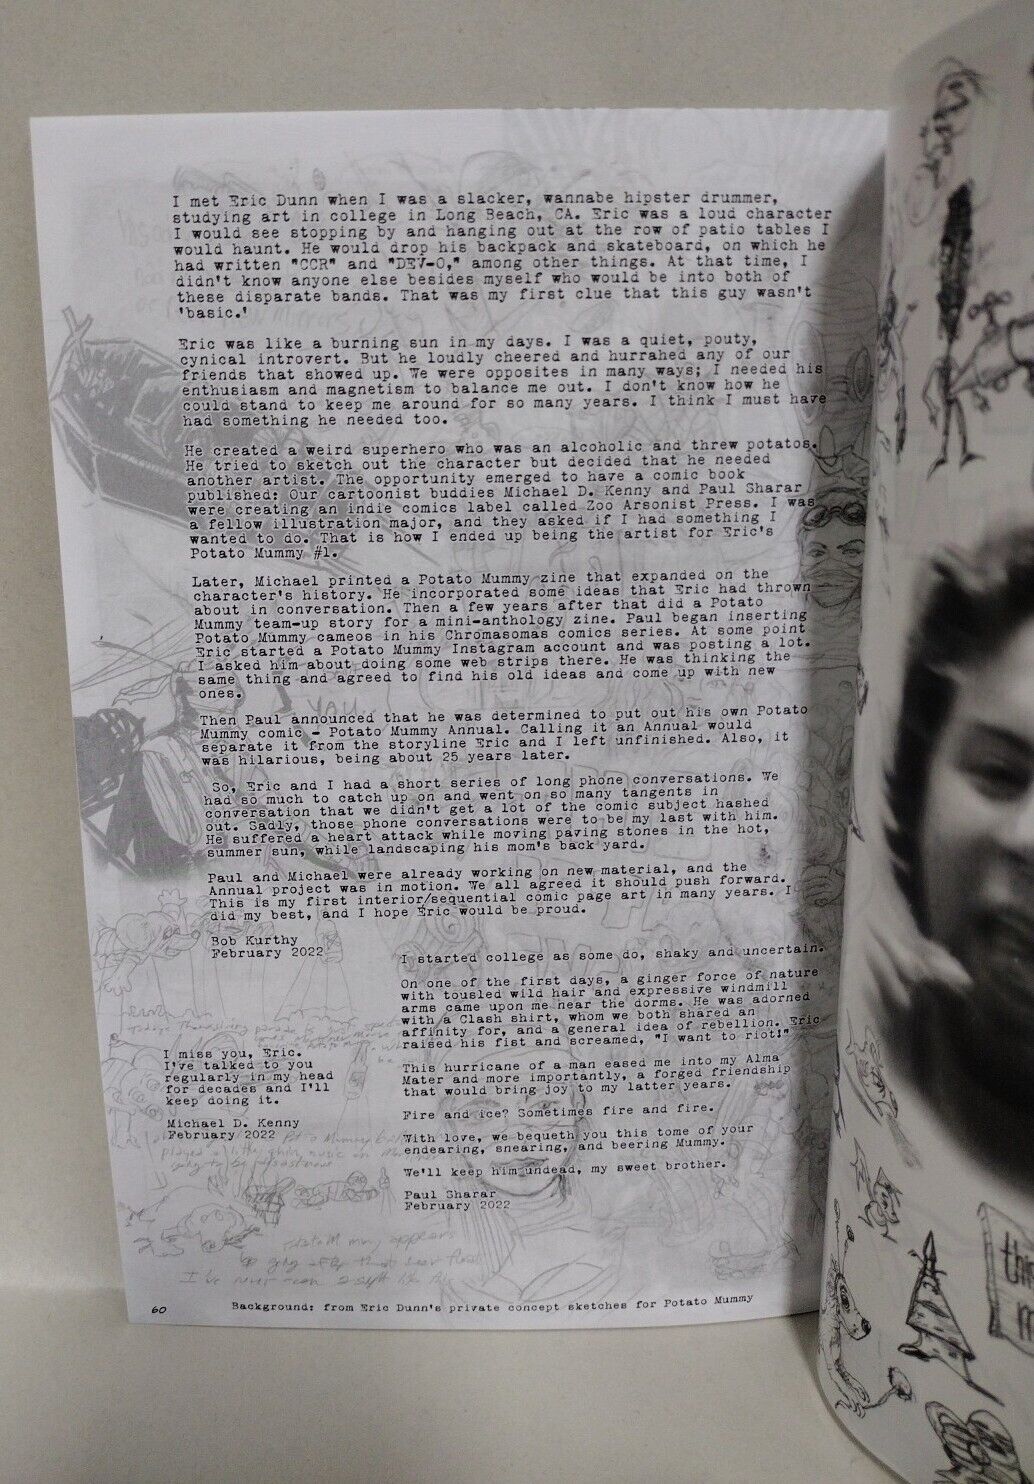 I met Eric Dunn when I was a slacker, wannabe hipster drummer,
studying art in college in Long Beach, CA. Eric was a loud character
I would see stopping by and hanging out at the row of patio tables I
would haunt. He would drop his backpack and skateboard, on which he
had written "CCR" and "DEV-O," among other things. At that time, I
didn't know anyone else besides myself who would be into both of
these disparate bands. That was my first clue that this guy wasn't
'basic.'
Eric was like a burning sun in my days. I was a quiet, pouty,
cynical introvert. But he loudly cheered and hurrahed any of our
friends that showed up. We were opposites in many ways; I needed his
enthusiasm and magnetism to balance me out. I don't know how he
could stand to keep me around for so many years. I think I must have
had something he needed too.
He created a weird superhero who was an alcoholic and threw potatos.
He tried to sketch out the character but decided that he needed
another artist. The opportunity emerged to have a comic book
published: Our cartoonist buddies Michael D. Kenny and Paul Sharar
were creating an indie comics label called Zoo Arsonist Press. I was
a fellow illustration major, and they asked if I had something I
wanted to do. That is how I ended up being the artist for Eric's
Potato Mummy #1.
Later, Michael printed a Potato Mummy zine that expanded on the
character's history. He incorporated some ideas that Eric had thrown
about in conversation. Then a few years after that did a Potato
Mummy team-up story for a mini-anthology zine. Paul began inserting
Potato Mummy cameos in his Chromasomas comics series. At some point
Eric started a Potato Mummy Instagram account and was posting a lot.
I asked him about doing some web strips there. He was thinking the
same thing and agreed to find his old ideas and come up with new
ones.
Then Paul announced that he was determined to put out his own Potato
Mummy comic - Potato Mummy Annual. Calling it an Annual would
separate it from the storyline Eric and I left unfinished. Also, it
was hilarious, being about 25 years later.
So, Eric and I had a short series of long phone conversations. We
had so much to catch up on and went on so many tangents in
conversation that we didn't get a lot of the comic subject hashed
out. Sadly, those phone conversations were to be my last with him.
He suffered a heart attack while moving paving stones in the hot,
summer sun, while landscaping his mom's back yard.
Paul and Michael were already working on new material, and the
Annual project was in motion. We all agreed it should push forward.
This is my first interior/sequential comic page art in many years. I
did my best, and I hope Eric would be proud.
Bob Kurthy
February 2022
I started college as some do, shaky and uncertain.
On one of the first days, a ginger force of nature
with tousled wild hair and expressive windmill
arms came upon me near the dorms. He was adorned
with a Clash shirt, whom we both shared an
affinity for, and a general idea of rebellion. Eric
raised his fist and screamed, "I want to riot!"
This hurricane of a man eased me into my Alma
Mater and more importantly, a forged friendship
that would bring joy to my latter years.
Fire and ice? Sometimes fire and fire.
With love, we bequeth you this tome of your
endearing, snearing, and beering Mummy.
We'll keep him undead, my sweet brother.
Paul Sharar
February 2022
I miss you, Eric.
I've talked to you
regularly in my head
for decades and I'll
keep doing it.
Michael D. Kenny
February 2022
60
Background: from Eric Dunn's private concept sketches for Potato Mummy